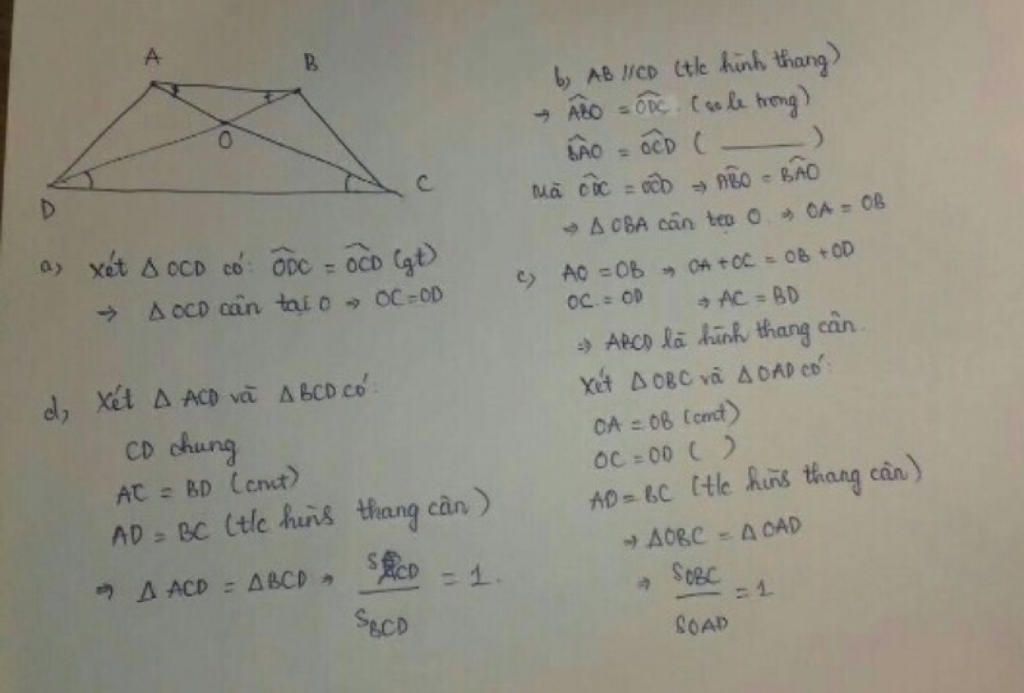 A
B
O
D
C
a) Xét Δ OCD có: ODC^ = OCD^ (gt)
→ Δ OCD cân tại O → OC = OD
b, AB // CD (t/c hình thang)
→ ABO^ = ODC^ (so le trong)
BAO^ = OCD^ ( ______ )
Mà ODC^ = OCD^ ⇒ ABO^ = BAO^
⇒ Δ OBA cân tại O. ⇒ OA = OB
c) AO = OB ⇒ OA + OC = OB + OD
OC = OD ⇒ AC = BD
⇒ ABCD là hình thang cân.
Xét Δ OBC và Δ OAD có:
OA = OB (cmt)
OC = OD ( )
AD = BC (t/c hình thang cân)
⇒ ΔOBC = Δ OAD
⇒ SOBC / SOAD = 1
d, Xét Δ ACD và Δ BCD có:
CD chung
AC = BD (cmt)
AD = BC (t/c hình thang cân)
⇒ Δ ACD = ΔBCD ⇒ SACD / SBCD = 1.